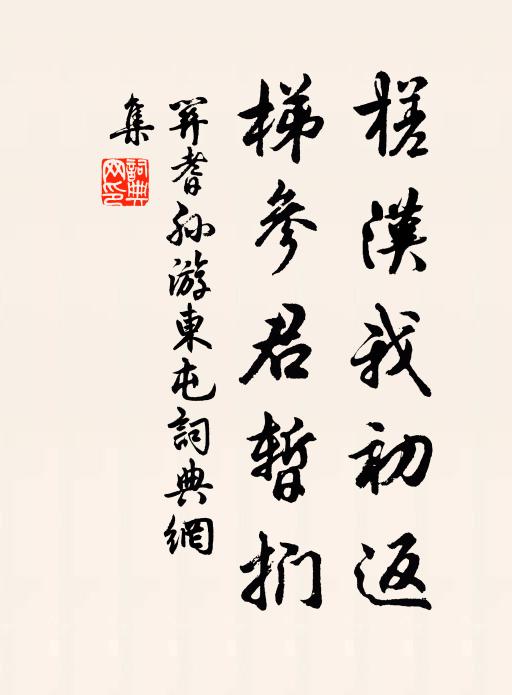 槎漢我初返
梯參君暫捫
關耆孫游東屯詞典網
集
詞典
网印